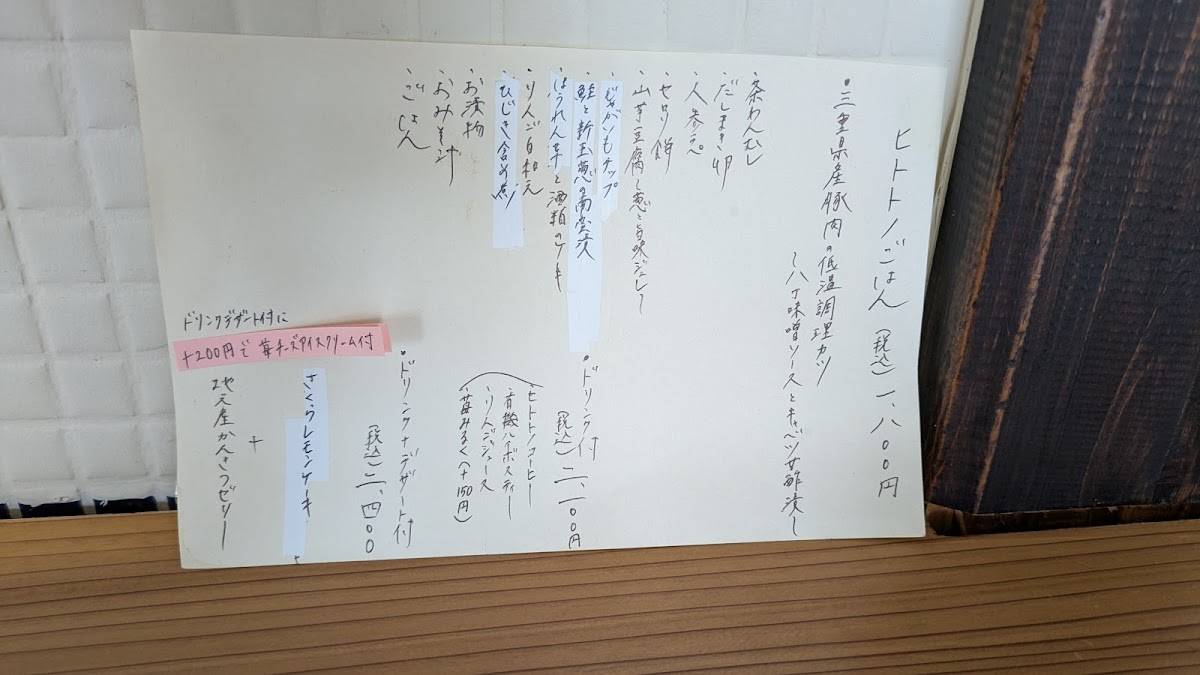 ヒトトノごはん (税込) 一、八〇〇円
・三重県産豚肉の低温調理カツ
〜八丁味噌ソースとキャベツ甘酢漬〜
・茶わんむし
・だしまき卵
・人参
・セロリ
・山芋豆腐〜葱と旨味ジュレ〜
・じゃがいもチップ
・鮭と新玉葱の南蛮漬
・ほうれん草と酒粕の
・りんご白和え
・ひじき含め煮
・お漬物
・おみそ汁
・ごはん
・ドリンク付 (税込) 二、一〇〇円
・ヒトトノコーヒー
・有機ハイボスティー
・りんごジュース
・苺みるく(+150円)
・ドリンク+デザート付
(税込) 二、四〇〇
さくらレモンケーキ
+
地元産かんきつゼリー
ドリンクデザート付に
+200円で苺チーズアイスクリーム付